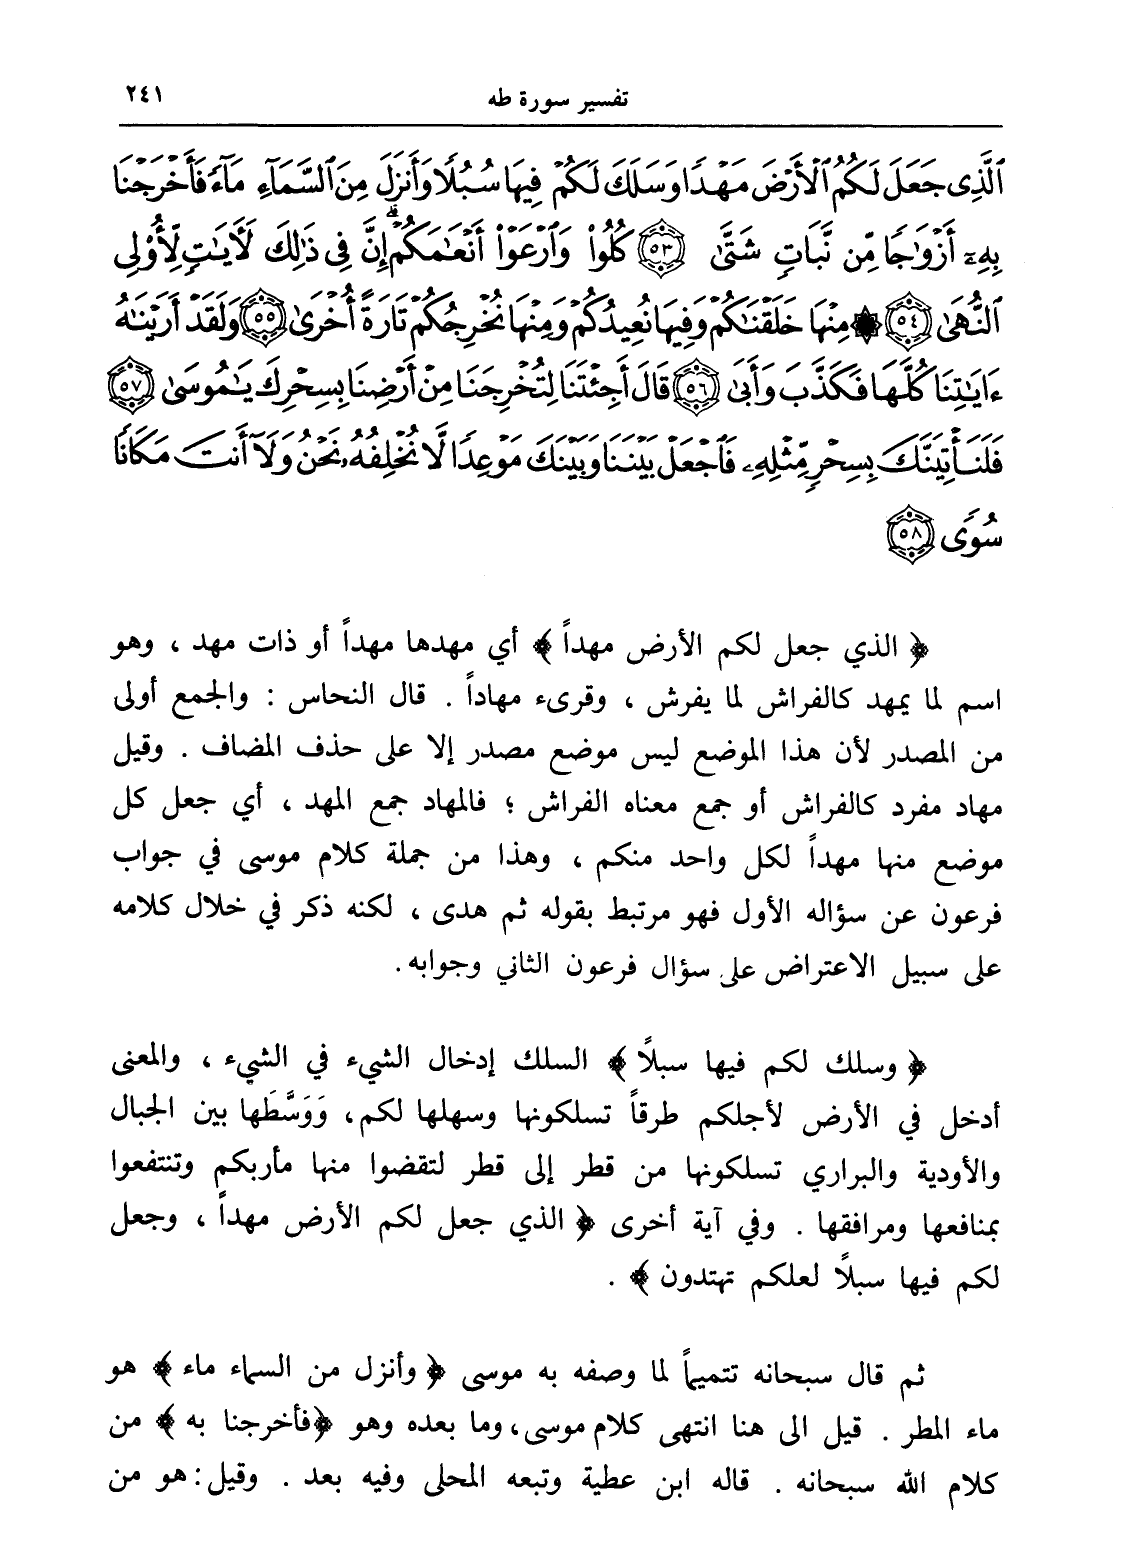 تفسير سورة طه ٢٤١
ٱلَّذِى جَعَلَ لَكُمُ ٱلْأَرْضَ مَهْدًا وَسَلَكَ لَكُمْ فِيهَا سُبُلًا وَأَنزَلَ مِنَ ٱلسَّمَآءِ مَآءً فَأَخْرَجْنَا
بِهِۦٓ أَزْوَٰجًا مِّن نَّبَاتٍ شَتَّىٰ ٥٣ كُلُوا۟ وَٱرْعَوْا۟ أَنْعَٰمَكُمْ ۗ إِنَّ فِى ذَٰلِكَ لَءَايَٰتٍ لِّأُو۟لِى
ٱلنُّهَىٰ ٥٤ ۞ مِنْهَا خَلَقْنَٰكُمْ وَفِيهَا نُعِيدُكُمْ وَمِنْهَا نُخْرِجُكُمْ تَارَةً أُخْرَىٰ ٥٥ وَلَقَدْ أَرَيْنَٰهُ
ءَايَٰتِنَا كُلَّهَا فَكَذَّبَ وَأَبَىٰ ٥٦ قَالَ أَجِئْتَنَا لِتُخْرِجَنَا مِنْ أَرْضِنَا بِسِحْرِكَ يَٰمُوسَىٰ ٥٧
فَلَنَأْتِيَنَّكَ بِسِحْرٍ مِّثْلِهِۦ فَٱجْعَلْ بَيْنَنَا وَبَيْنَكَ مَوْعِدًا لَّا نُخْلِفُهُۥ نَحْنُ وَلَآ أَنتَ مَكَانًا
سُوًى ٥٨
﴿ الذي جعل لكم الأرض مهداً ﴾ أي مهدها مهداً أو ذات مهد ، وهو
اسم لما يمهد كالفراش لما يفرش ، وقرىء مهاداً . قال النحاس : والجمع أولى
من المصدر لأن هذا الموضع ليس موضع مصدر إلا على حذف المضاف . وقيل
مهاد مفرد كالفراش أو جمع معناه الفراش ؛ فالمهاد جمع المهد ، أي جعل كل
موضع منها مهداً لكل واحد منكم ، وهذا من جملة كلام موسى في جواب
فرعون عن سؤاله الأول فهو مرتبط بقوله ثم هدى ، لكنه ذكر في خلال كلامه
على سبيل الاعتراض على سؤال فرعون الثاني وجوابه .
﴿ وسلك لكم فيها سبلاً ﴾ السلك إدخال الشيء في الشيء ، والمعنى
أدخل في الأرض لأجلكم طرقاً تسلكونها وسهلها لكم ، وَوَسَّطَها بين الجبال
والأودية والبراري تسلكونها من قطر إلى قطر لتقضوا منها مأربكم وتنتفعوا
بمنافعها ومرافقها . وفي آية أخرى ﴿ الذي جعل لكم الأرض مهداً ، وجعل
لكم فيها سبلاً لعلكم تهتدون ﴾ .
ثم قال سبحانه تتميماً لما وصفه به موسى ﴿ وأنزل من السماء ماء ﴾ هو
ماء المطر . قيل الى هنا انتهى كلام موسى ، وما بعده وهو ﴿ فأخرجنا به ﴾ من
كلام الله سبحانه . قاله ابن عطية وتبعه المحلى وفيه بعد . وقيل : هو من